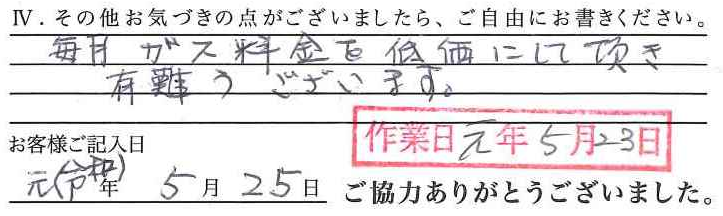 Ⅳ．その他お気づきの点がございましたら、ご自由にお書きください。
毎月ガス料金を低価にして頂き
有難うございます。
お客様ご記入日
作業日元年5月23日
元(令和)年 5月25日
ご協力ありがとうございました。